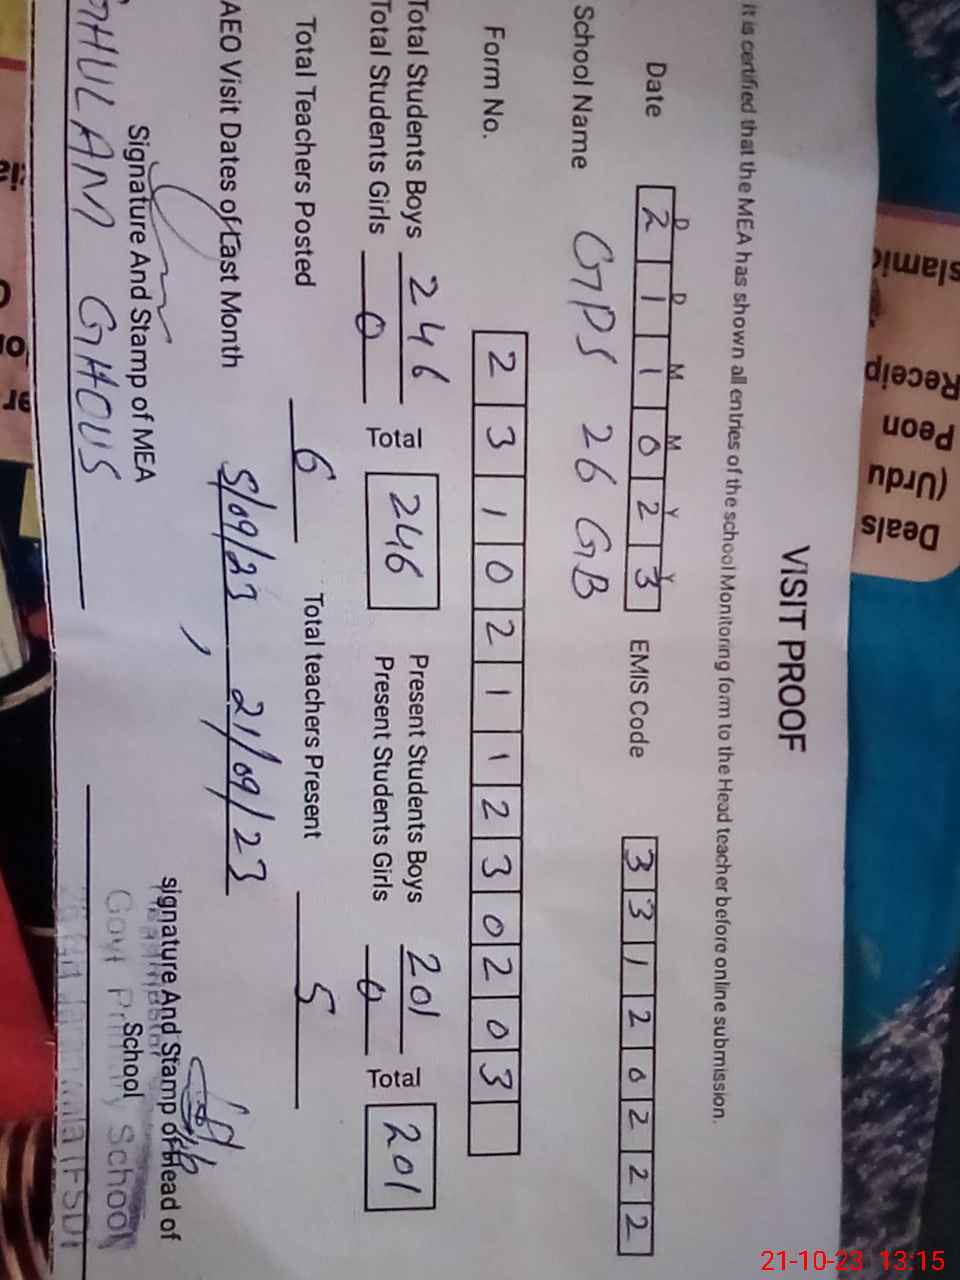 VISIT PROOF
it is certified that the MEA has shown all entries of the school Monitoring form to the Head teacher before online submission.
D D M M Y Y
Date 2 1 1 0 2 3 EMIS Code 3 3 1 2 0 2 2 2
School Name GPS 26 GB
Form No. 2 3 1 0 2 1 1 2 3 0 2 0 3
Total Students Boys 246 Total 246 Present Students Boys 201 Total 201
Total Students Girls 0 Present Students Girls 0
Total Teachers Posted 6 Total teachers Present 5
AEO Visit Dates of Last Month 5/09/23, 21/09/23
Signature And Stamp of MEA signature And Stamp of Head of
School
GHULAM GHOUS
Govt Primary School
slamic
Receip
Peon
(Urdu
Deals
21-10-23 13:15